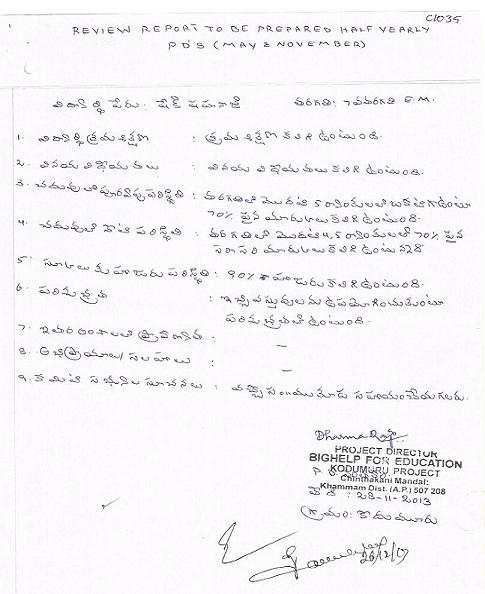 C1035
REVIEW REPORT TO BE PREPARED HALF YEARLY
PD'S (MAY & NOVEMBER)
విద్యార్థి పేరు: షేక్ షహనాజ్ తరగతి: 7వతరగతి E.M.
1. విద్యార్థి క్రమశిక్షణ : క్రమశిక్షణ కలిగి ఉంటుంది.
2. వినయ విధేయతలు : వినయ విధేయతలు కలిగి ఉంటుంది.
3. చదువులో పూర్వపు పరిస్థితి : తరగతిలో మొదటి 5 ర్యాంకులలో ఒకటిగా ఉంటూ
70% పైన మార్కులు కలిగి ఉంటుంది.
4. చదువులో నేటి పరిస్థితి : తరగతిలో మొదటి 4,5 ర్యాంకులలో 70% పైన
సరాసరి మార్కులు కలిగి ఉంటున్నది
5. స్కూలుకు హాజరు పరిస్థితి : 90% హాజరు కలిగి ఉంటుంది.
6. పరిశుభ్రత : ఇచ్చిన వస్తువులను ఉపయోగించుకుంటూ
పరిశుభ్రతతో ఉంటుంది.
7. ఇతర అంశాలలో ప్రావీణ్యత : –
8. అభిప్రాయాలు/సలహాలు : –
9. కమిటి సభ్యుల సూచనలు : వచ్చే సం||ము కూడా సహాయం చేయగలరు.
Dharma Raju
PROJECT DIRECTOR
BIGHELP FOR EDUCATION
KODUMURU PROJECT
Chinthakani Mandal:
Khammam Dist. (A.P.) 507 208
తేది : 28-11-2013
గ్రామం: కొదుమూరు